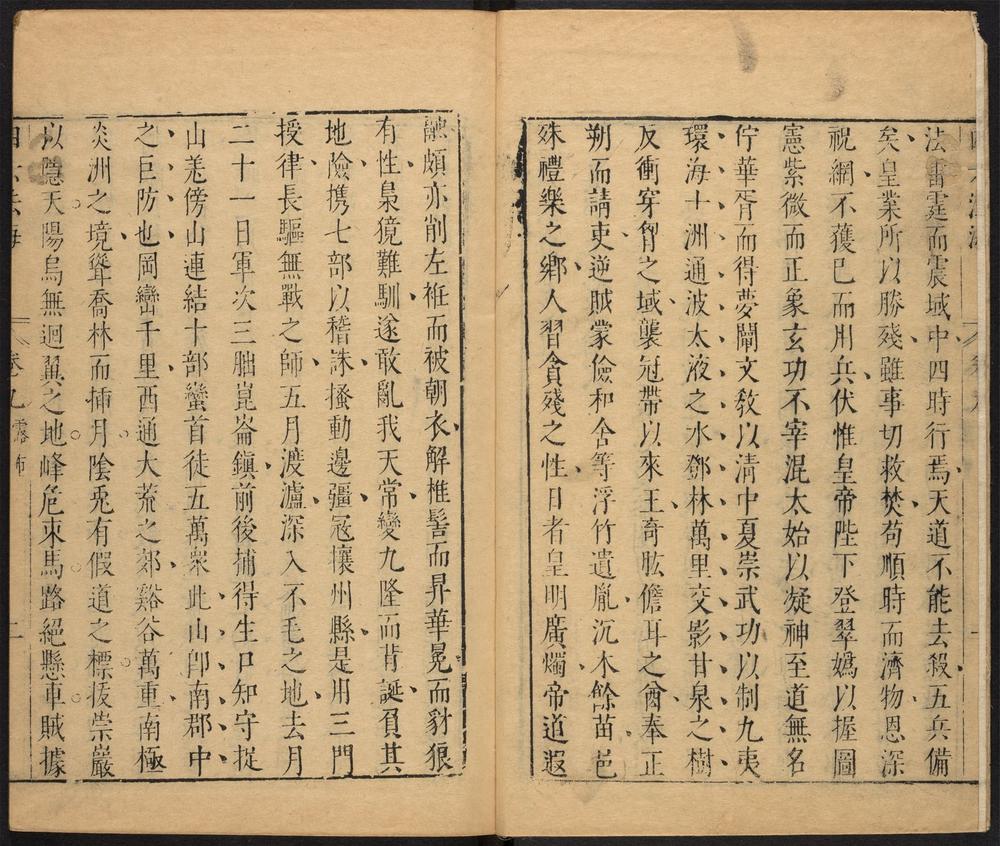 法雷霆而震域中四時行焉天道不能去殺五兵備
矣皇業所以勝殘雖事切救焚苟順時而濟物恩深
祝網不獲已而用兵伏惟皇帝陛下登翠嬀以握圖
憲紫微而正象玄功不宰混太始以凝神至道無名
佇華胥而得夢闡文敎以清中夏崇武功以制九夷
環海十洲通波太液之水鄧林萬里交影甘泉之樹
反衝穿胷之域襲冠帶以來王奇肱儋耳之酋奉正
朔而請吏逆賊蒙儉和舍等浮竹遺胤沉木餘苗邑
殊禮樂之鄉人習貪殘之性日者皇明廣燭帝道遐
融頗亦削左袵而被朝衣解椎髻而昇華冕而豺狼
有性梟獍難馴遂敢亂我天常變九隆而背誕負其
地險携七部以稽誅搔動邊疆寇攘州縣是用三門
授律長驅無戰之師五月渡瀘深入不毛之地去月
二十一日軍次三朏崑崙鎭前後捕得生口知守捉
山羗傍山連結十部蠻首徒五萬衆此山卽南郡中
之巨防也岡巒千里西通大荒之郊谿谷萬重南極
炎洲之境聳喬林而揷月陰兎有假道之標拔崇巖
以隱天陽烏無迴翼之地峰危束馬路絕懸車賊據
卷九 露布 二